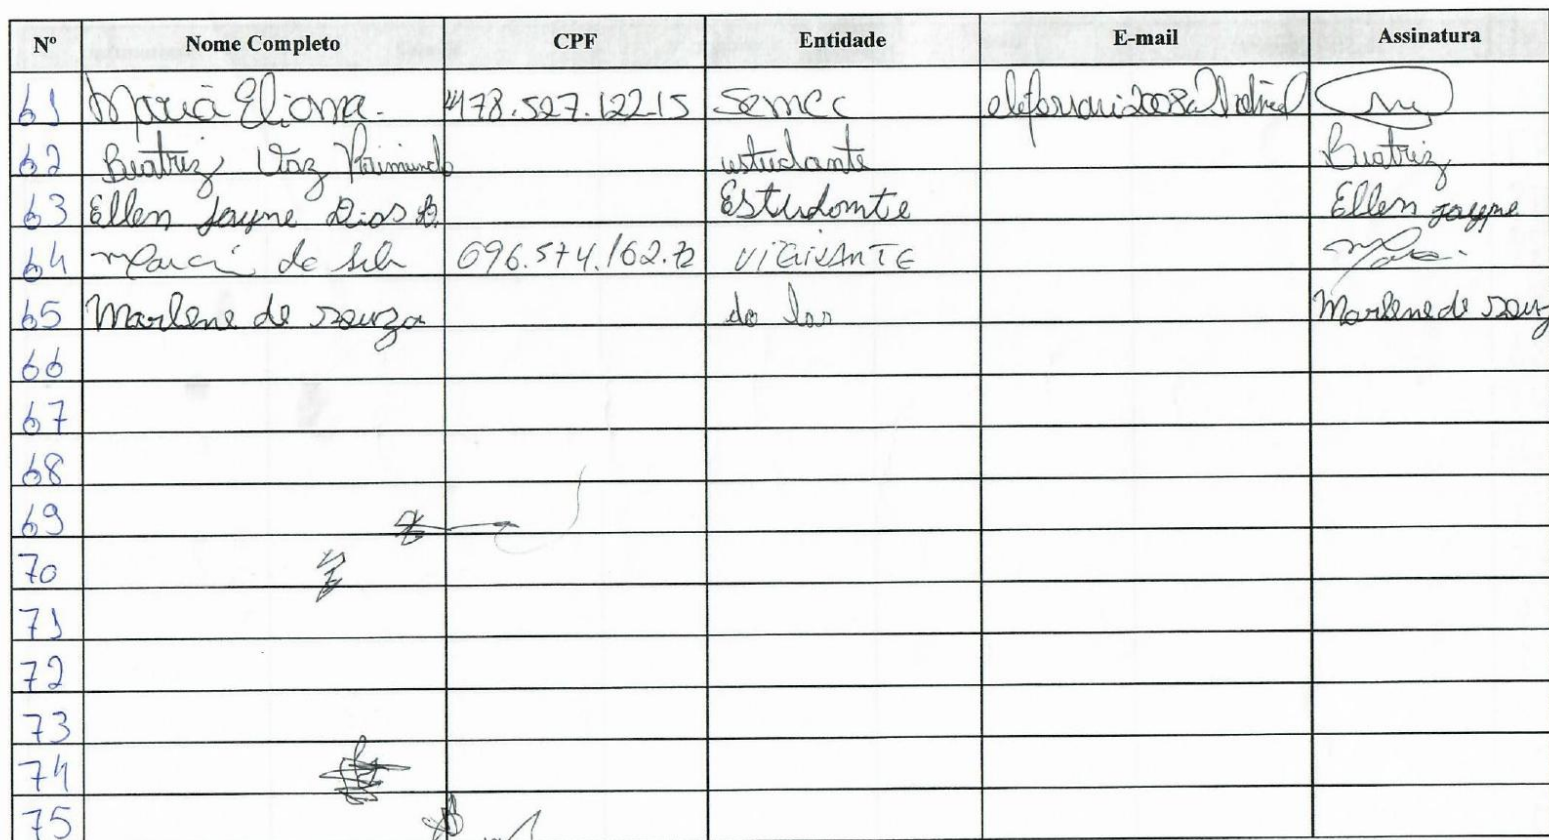 Nº Nome Completo CPF Entidade E-mail Assinatura
61 Maria Eliana. 478.527.122.15 Semec
62 Beatriz Vaz Raimundo estudante Beatriz
63 Ellen Jayne Dias B. Estudante Ellen Jayne
64 da 696.574.162.72 VIGILANTE
65 Marlene de souza do lar Marlene de souz
66
67
68
69
70
71
72
73
74
75